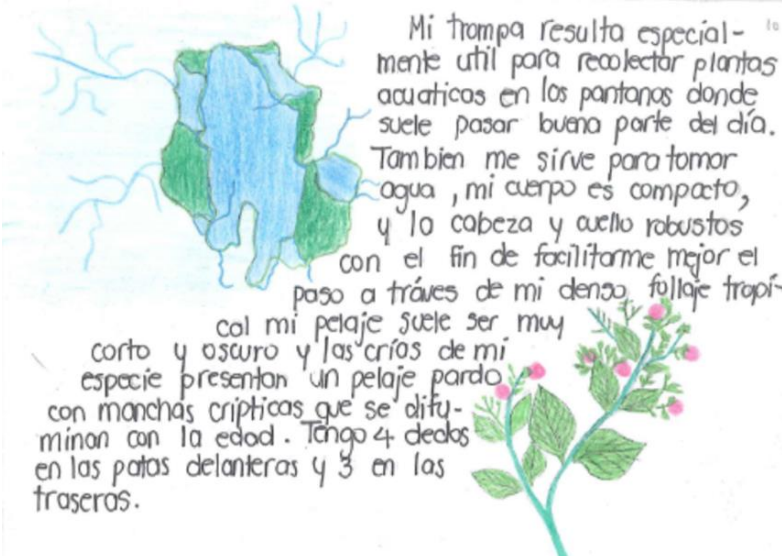 10
Mi trompa resulta especial-
mente util para recolectar plantas
acuaticas en los pantanos donde
suele pasar buena parte del día.
Tambien me sirve para tomar
agua, mi cuerpo es compacto,
y la cabeza y cuello robustos
con el fin de facilitarme mejor el
paso a tráves de mi denso follaje tropi-
cal mi pelaje suele ser muy
corto y oscuro y las crías de mi
especie presentan un pelaje pardo
con manchas cripticas que se difu-
minan con la edad. Tengo 4 dedos
en las patas delanteras y 3 en las
traseras.